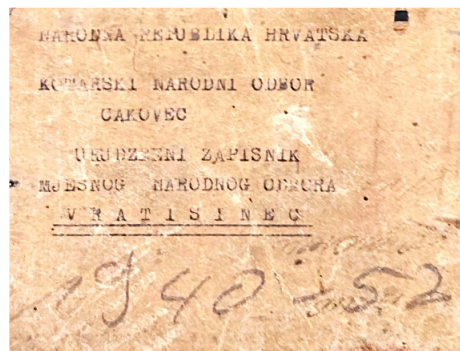 NARODNA REPUBLIKA HRVATSKA
KOTARSKI NARODNI ODBOR
CAKOVEC
URUDZBENI ZAPISNIK
MJESNOG NARODNOG ODBORA
VRATISINEC
1940-52